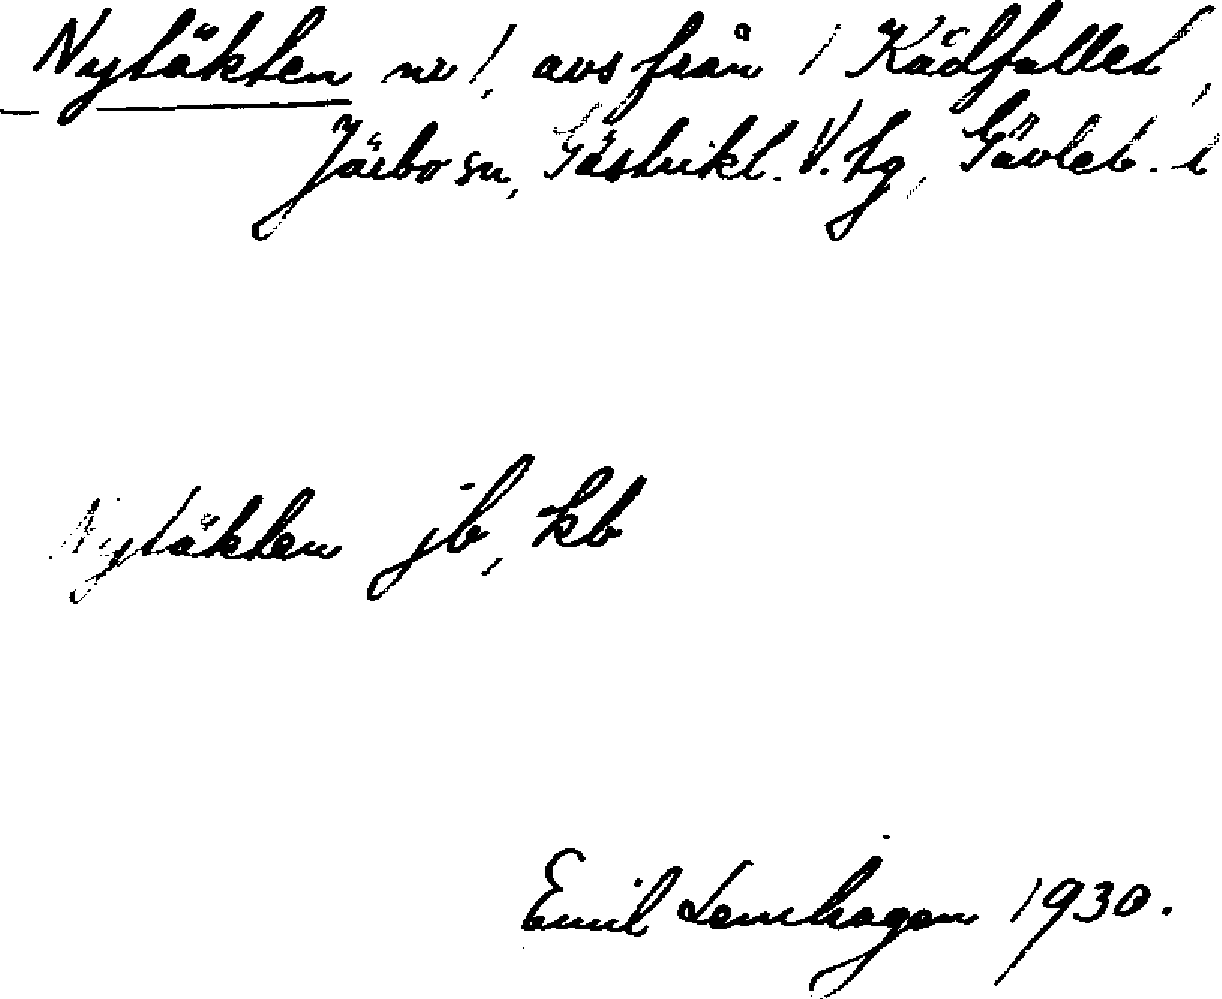 Nytäkten nr 1, avs från 1 Kådfallet,
Järbo sn, Gästrikl. V. tg, Gävleb. l
Nytäkten jb, kb
Emil Lennhagen 1930.